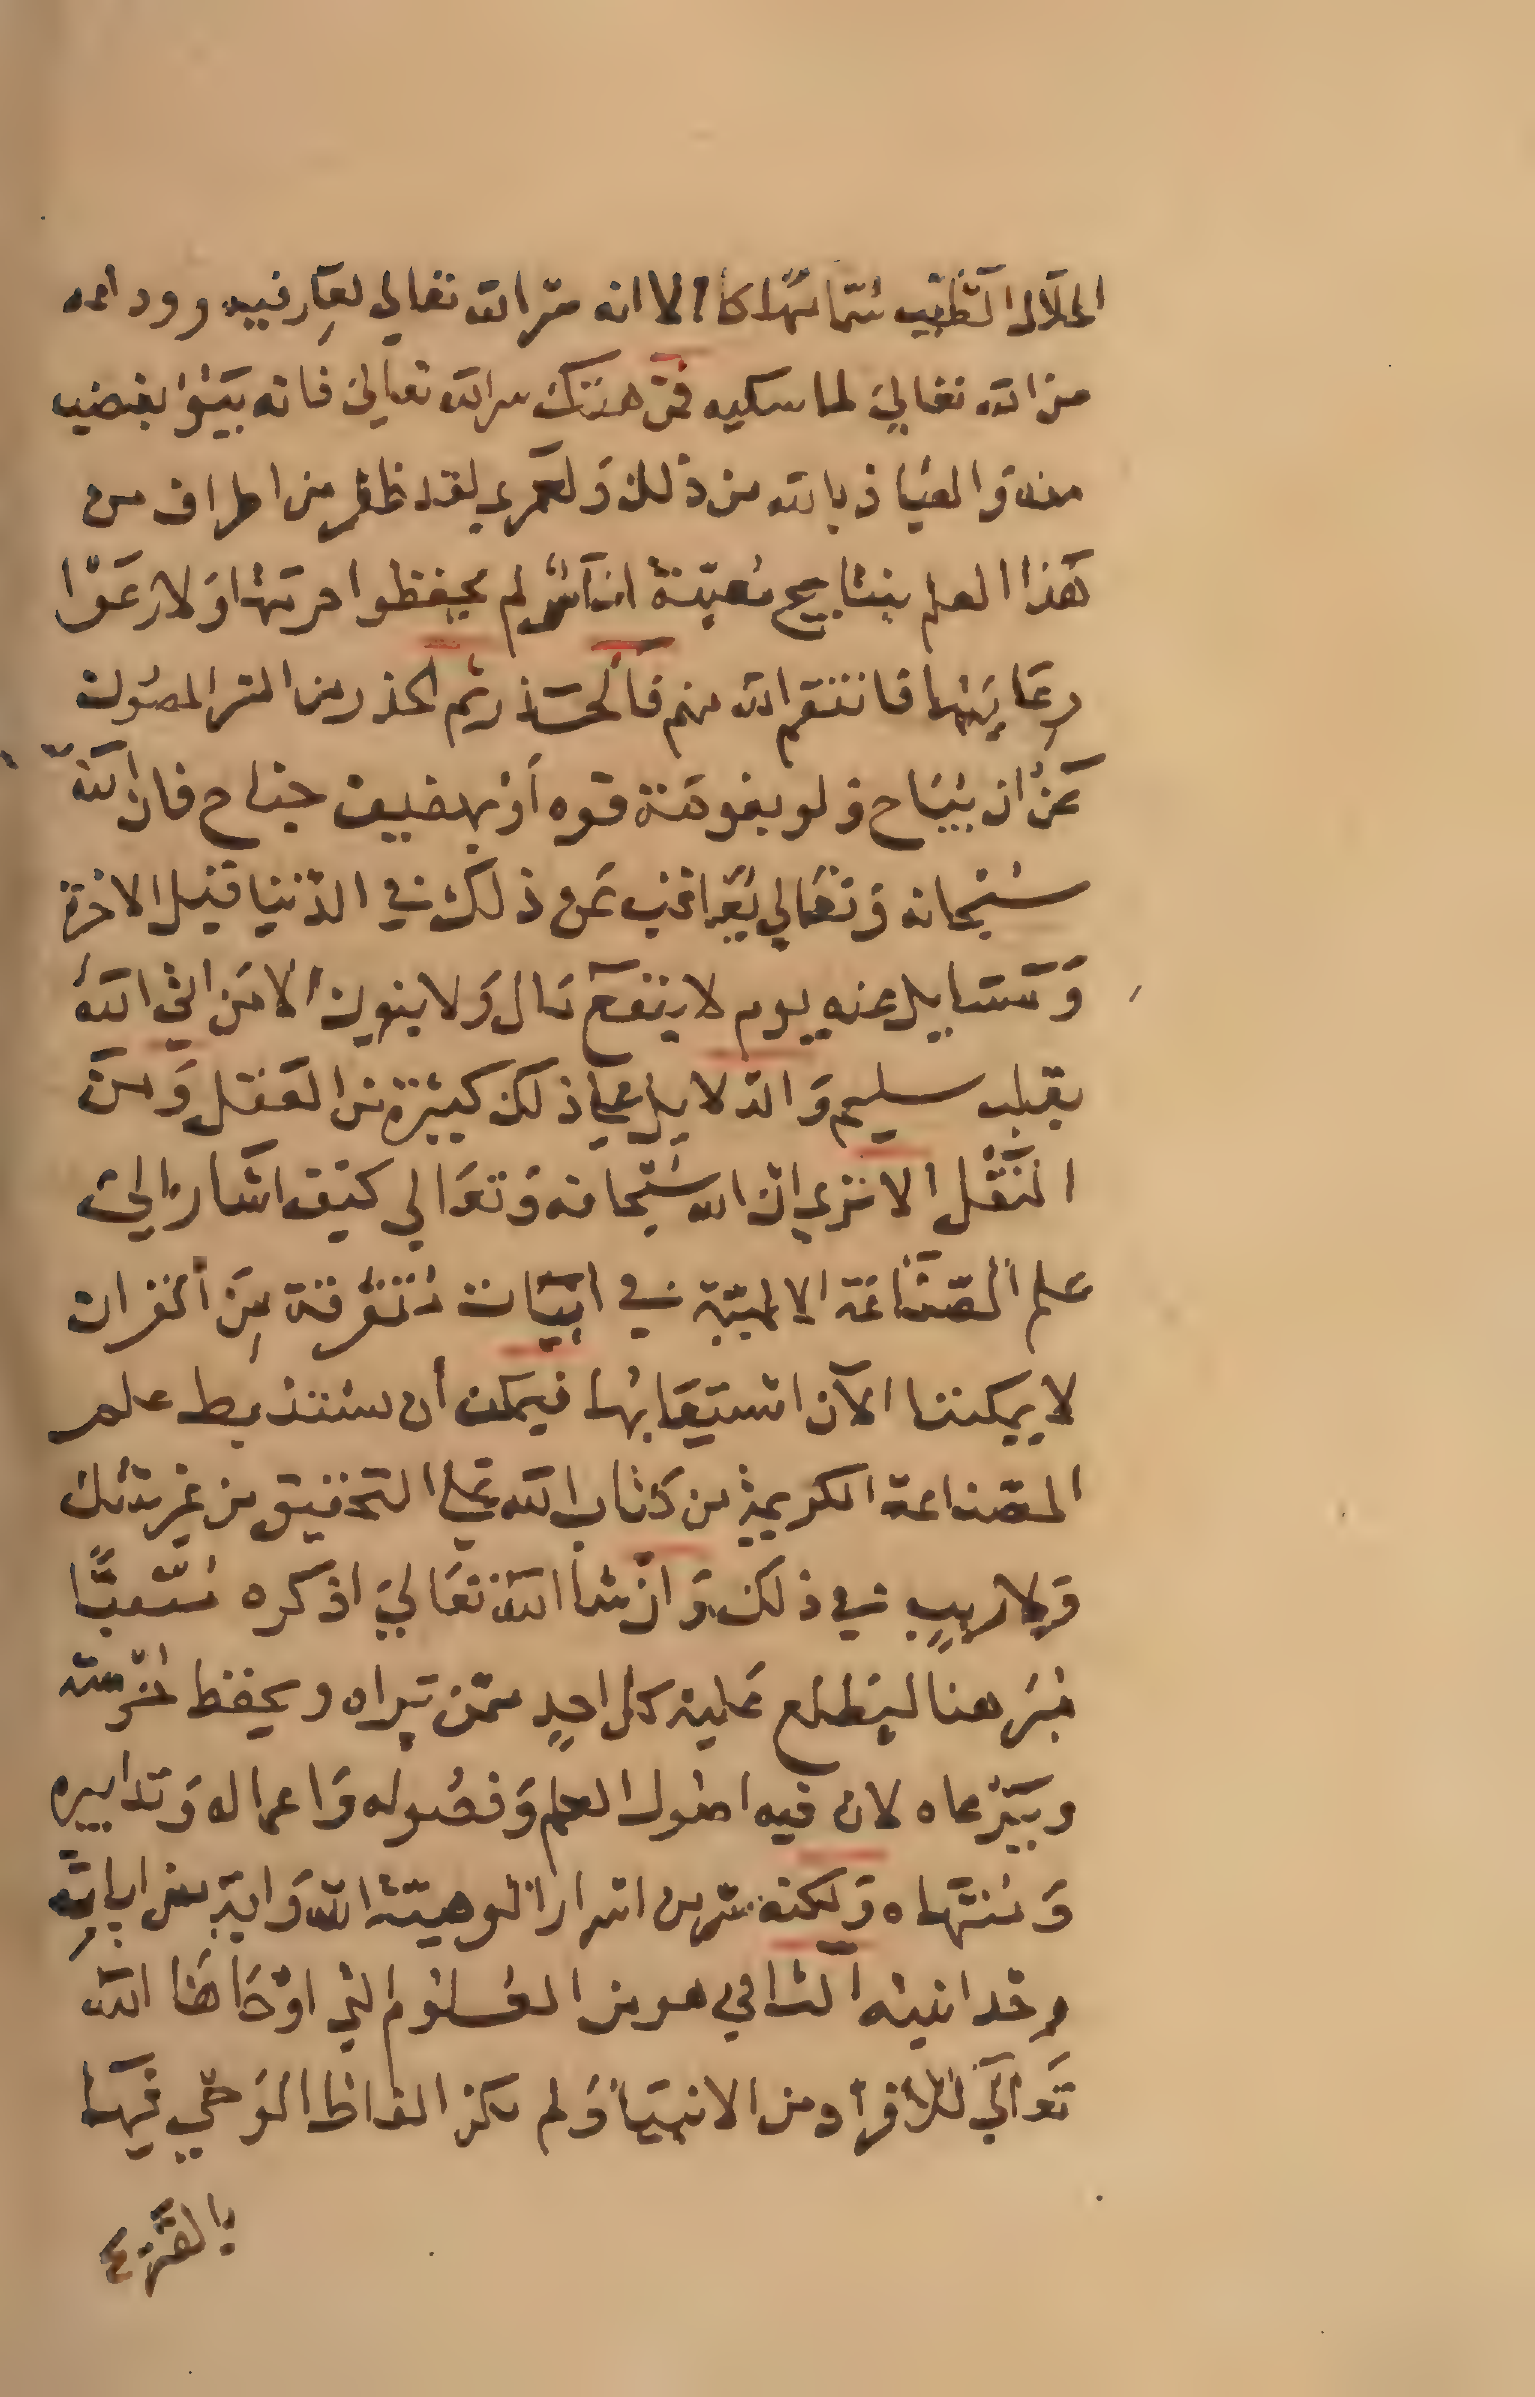 الحلال الطيب سما مهلكا الا انه سر الله تعالى لعارفيه وودايعه
من الله تعالى لماسكيه فمن هتك سر الله تعالى فانه يبؤ بغضب
منه والعياذ بالله من ذلك ولعمري لقد ظفر من اطراف من
هذا العلم بنتايج معينة اناس لم يحفظوا حرمتها ولا رعوا
رعايتها فانتقم الله منهم فالحذر ثم الحذر من السر المصون
عن ان يباح ولو بفوهة قوه او بهفيف جناح فان الله
سبحانه وتعالى يعاقب عن ذلك في الدنيا قبل الاخرة
وتسايل عنه يوم لا ينفع مال ولا بنون الا من اتى الله
بقلب سليم والدلايل على ذلك كثيرة من العقل ومن
النقل الا ترى ان الله سبحانه وتعالى كيف اشار الى
علم الصناعة الالهية في ايات متفرقة من القران
لا يمكننا الآن استيعابها فيمكن أن يستنبط علم
الصناعة الكريمة من كتاب الله على التحقيق من غير شك
ولا ريب في ذلك وان شا الله تعالى اذكره
هنا ليطلع عليه كل احد ممن يراه ويحفظ حرمته
ويرعاه لان فيه اصول العلم وفصوله واعماله وتدابيره
ومنتهاه ولكنه سر من اسرار الوهية الله واية من اياته
وحدانيته الذي هو من العلوم التي اوحاها الله
تعالى للافراد من الانبيا ولم يكن الفاظ الوحي فيها